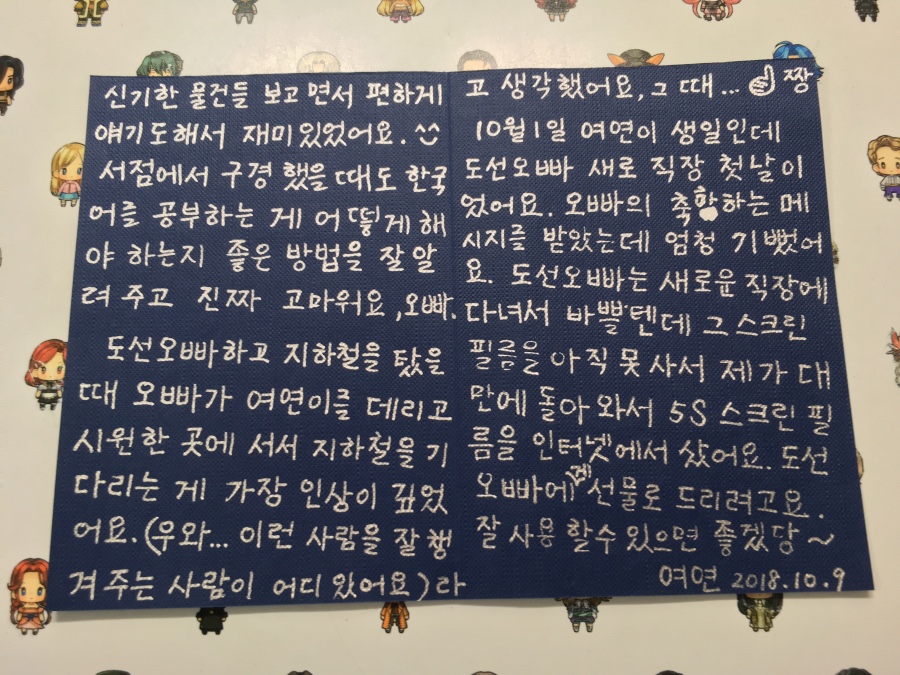 신기한 물건들 보고면서 편하게
얘기도해서 재미있었어요.
서점에서 구경 했을 때도 한국
어를 공부하는 게 어떻게 해
야 하는지 좋은 방법을 잘 알
려 주고 진짜 고마워요, 오빠.
도선오빠하고 지하철을 탔을
때 오빠가 여연이를 데리고
시원한 곳에 서서 지하철을 기
다리는 게 가장 인상이 깊었
어요. (우와... 이런 사람을 잘 챙
겨 주는 사람이 어디 있어요) 라
고 생각했어요, 그 때... 짱
10월 1일 여연이 생일인데
도선오빠 새로 직장 첫날이
었어요. 오빠의 축하하는 메
시지를 받았는데 엄청 기뻤어
요. 도선오빠는 새로운 직장에
다녀서 바쁠텐데 그 스크린
필름을 아직 못 사서 제가 대
만에 돌아 와서 5S 스크린 필
름을 인터넷에서 샀어요. 도선
오빠에게 선물로 드리려고요.
잘 사용 할 수 있으면 좋겠당~
여연 2018.10.9